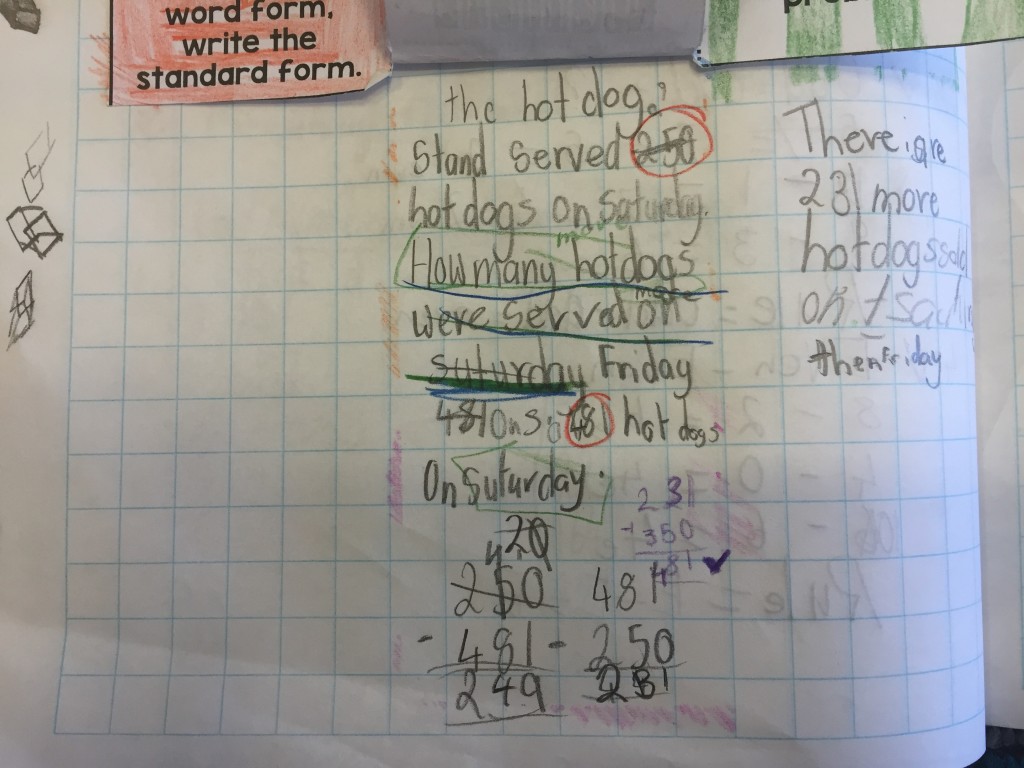 word form,
write the
standard form.
the hot dog
Stand served 250
hotdogs on Saturday.
How many hotdogs
more
were served on
suturday Friday
481 On S 481 hot dogs
On Suturday.
231
+350
481 ✓
20
250
- 481
249
481
- 250
231
There are
231 more
hotdogs sold
on
then Friday